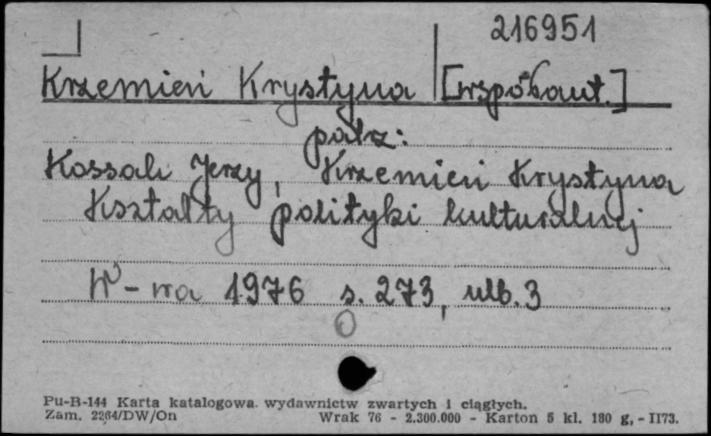 216951
Krzemień Krystyna [współaut.]
patrz:
Kossak Jerzy, Krzemień Krystyna
Kształty polityki kulturalnej
W-wa 1976 s. 273, nlb. 3
Pu-B-144 Karta katalogowa wydawnictw zwartych i ciągłych.
Zam. 2264/DW/On Wrak 76 - 2.300.000 - Karton 5 kl. 180 g, - II73.